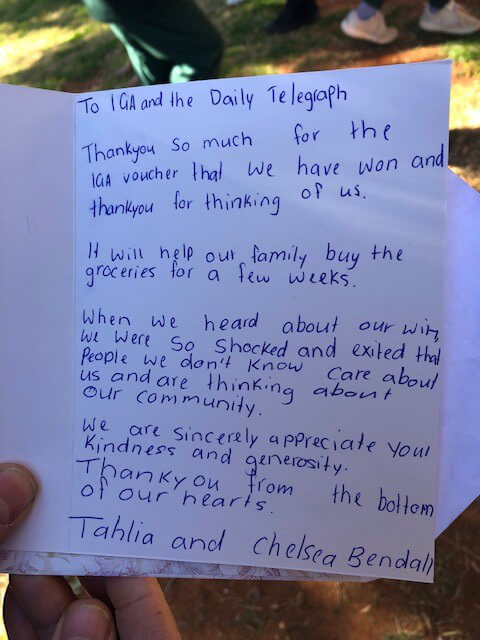 To IGA and the Daily Telegraph
Thankyou so much for the
IGA voucher that we have won and
thankyou for thinking of us.
It will help our family buy the
groceries for a few weeks.
When we heard about our win,
we were so shocked and exited that
People we don't know care about
us and are thinking about
our community.
We are sincerely appreciate your
kindness and generosity.
Thankyou from the bottom
of our hearts.
Tahlia and Chelsea Bendall